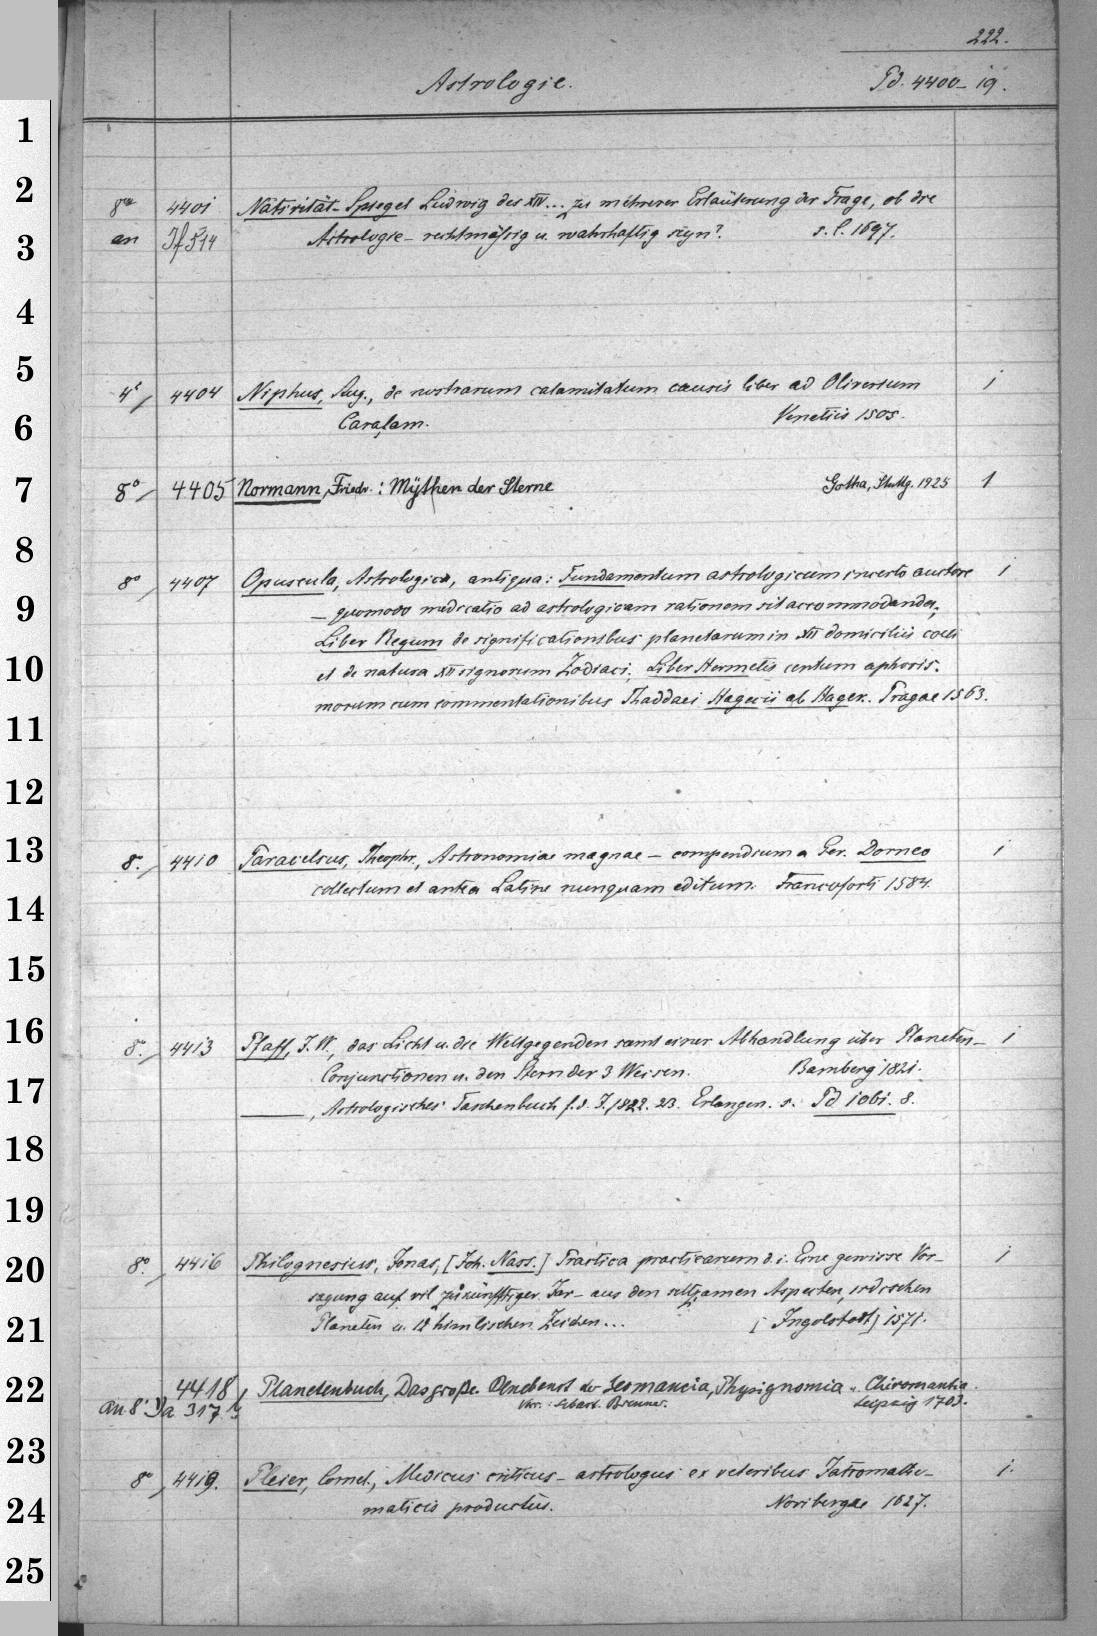 222.
Astrologie. Pd. 4400-19.
1
2
8vo 4401 Nativität-Spiegel Ludwig des XIV... zu mehrerer Erläuterung der Frage, ob die
an If 514 Astrologie - rechtmässig u. wahrhaftig seyn? s. l. 1697.
3
4
5
4t 4404 Niphus, Aug., de nostrarum calamitatum causis liber ad Oliverium 1
6 Carafam. Venetiis 1505.
7 8° 4405 Normann, Friedr.: Mythen der Sterne Gotha, Stuttg. 1925 1
8
8° 4407 Opuscula, Astrologica, antiqua: Fundamentum astrologicum incerto auctore 1
9 — quomodo medicatio ad astrologicam rationem sit accommodanda;
Liber Regum de significationibus planetarum in XII domiciliis coeli
10 et de natura XII signorum Zodiaci. Liber Hermetis centum aphoris-
morum cum commentationibus Thaddaei Hagecii ab Hagek. Pragae 1563.
11
12
13 8°. 4410 Paracelsus, Theophr., Astronomiae magnae — compendium a Ger. Dorneo 1
collectum et antea Latine nunquam editum. Francoforti 1584.
14
15
16 8°. 4413 Pfaff, J. W., das Licht u. die Weltgegenden samt einer Abhandlung über Planeten- 1
Conjunctionen u. den Stern der 3 Weisen. Bamberg 1821.
17 ——, Astrologisches Taschenbuch f. d. J. 1822. 23. Erlangen. s. Pd 1061. 8.
18
19
20 8°. 4416 Philognesius, Jonas, [Joh. Nass.] Practica practicarum d. i. Eine gewisse Vor- 1
sagung auf vil zukünfftiger Jar - aus den seltzamen Aspecten, irdischen
21 Planeten u. 12 himlischen Zeichen... [Ingolstadt] 1571.
22 4418 Planetenbuch, Das große. Nebenst der Geomancia, Physignomia u. Chiromantia.
an 8° Da 317 Leipzig 1703.
23
8° 4419. Pleier, Cornel., Medicus criticus - astrologus ex veteribus Iatromathe- 1.
24 maticis productus. Noribergae 1627.
25